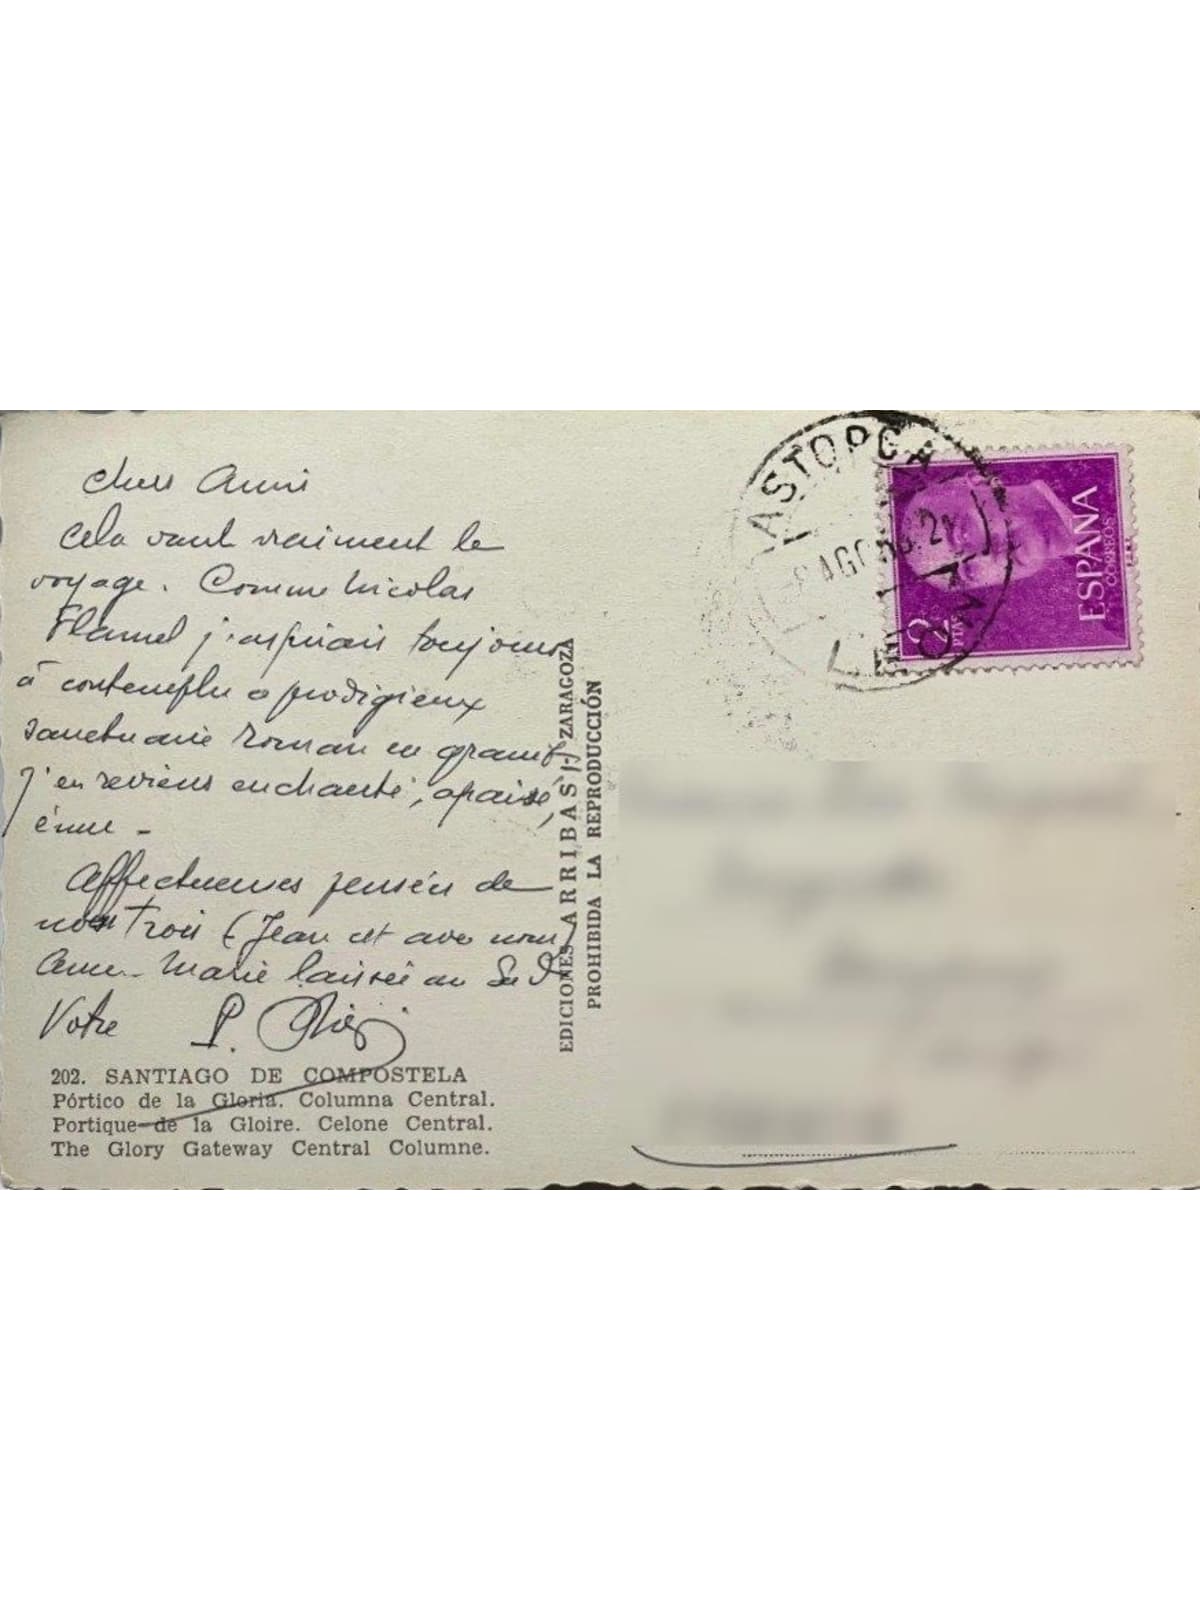 Chers Amis
Cela vaut vraiment le
voyage. Comme Nicolas
Flamel j'aspirais toujours
à contempler ce prodigieux
sanctuaire roman en granit
j'en reviens enchanté, apaisé,
ému -
Affectueuses pensées de
nous trois (Jean est avec nous,
Anne-Marie laissée au Sud)
Votre P.
202. SANTIAGO DE COMPOSTELA
Pórtico de la Gloria. Columna Central.
Portique de la Gloire. Celone Central.
The Glory Gateway Central Columne.
EDICIONES ARRIBAS - ZARAGOZA
PROHIBIDA LA REPRODUCCIÓN
ASTORGA
AGO
2 PTAS
ESPAÑA
CORREOS